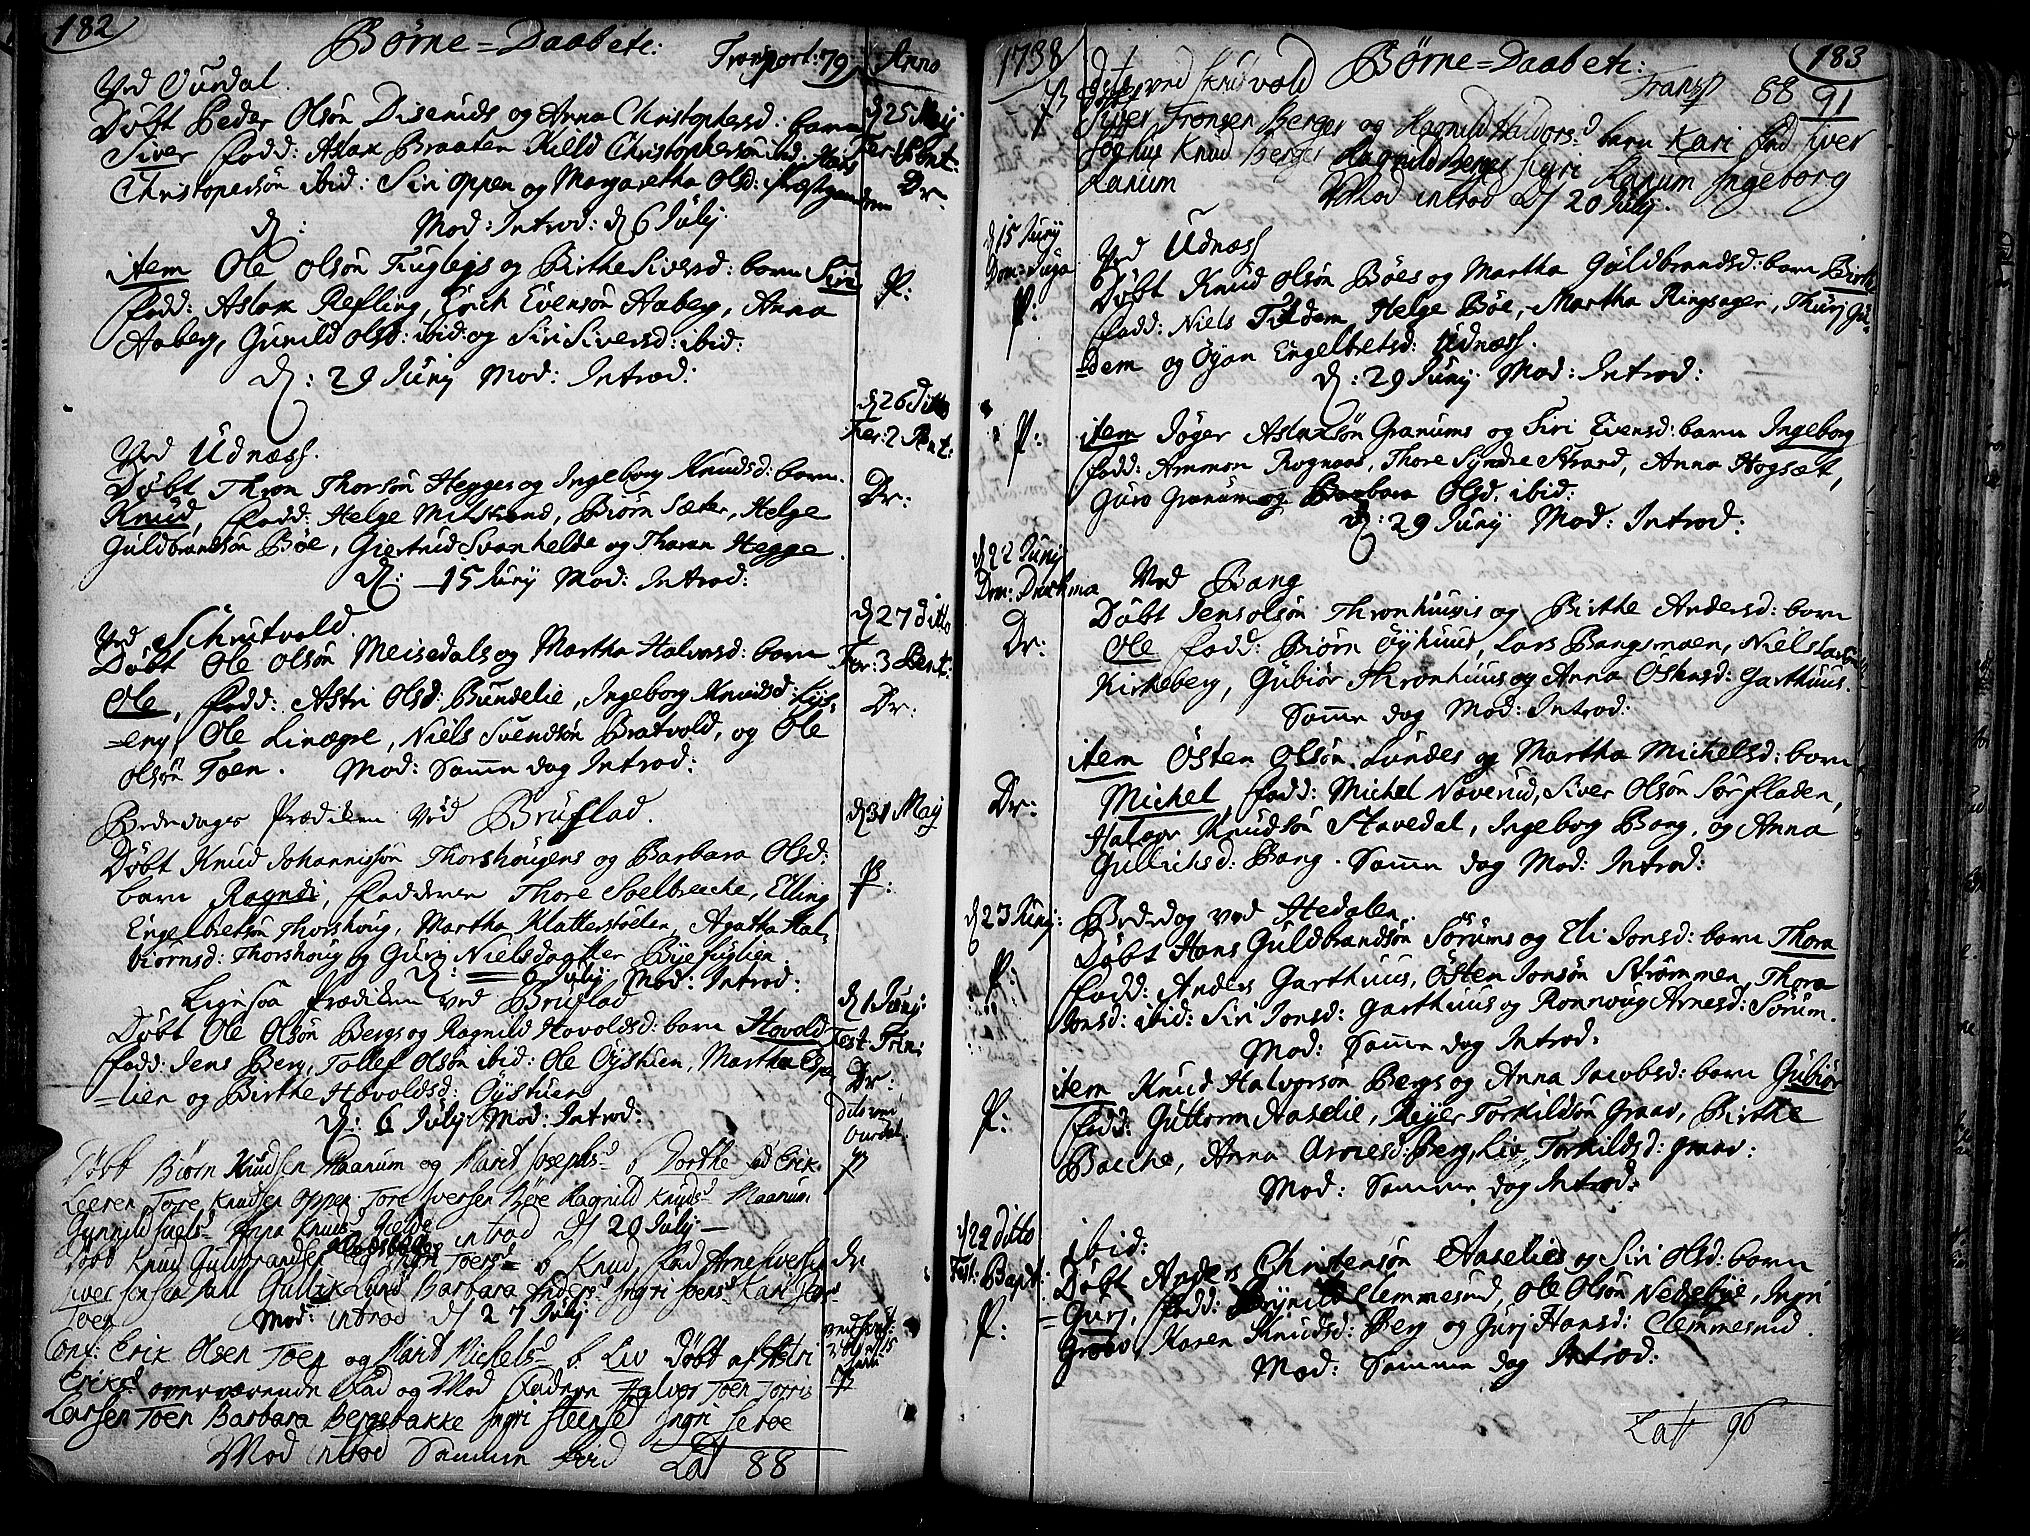 182
Børne=Daabete:
Transport: 79
Anno
Ved Ourdal.
Døbt Peder Olsøn Diserüds og Anna Christophersd: barn
d 25 Maij
Siver fadd: Aslax Braaten Kield Christophersøn ibid: Hans
Fer: 1 Pent:
Christopersøn ibid: Siri Oppen og Margaretha Olsd: Præstgaarden
Dr:
d: Mod: Introd: d 6 Julij
item Ole Olsøn Fuglejs og Birthe Siversd: barn Siri
P:
fadd: Aslax Refling, Erich Evensøn Aaberg, Anna
Aaberg, Gunild Olsd: ibid: og Siri Siversd: ibid:
d: 29 Junij Mod: Introd:
d 26 Ditto
Fer: 2 Pent:
Ved Udnæss.
Døbt Thron Thorsøn Hegges og Ingeborg Knudsd: barn
Dr:
Knud, fadd: Helge Midstrand, Biørn Sæter, Helge
Guldbrandsøn Bøe, Giertrud Svanhelde og Tharan Hegge
d: 15 Junij Mod: Introd:
d 27 ditto
Ved Schrutvold.
Døbt Ole Olsøn Meisedals og Martha Halvorsd: barn
Fer: 3 Pent:
Ole, fadd: Astri Olsd: Bundelie, Ingeborg Knudsd: Lys=
Dr:
=eng, Ole Linægre, Niels Svendsøn Bratvold, og Ole
Olsøn Toen. Mod: Samme dag Introd:
d 31 Maij
Bededags Prædiken Ved Bruflad.
Døbt Knud Johannisøn Thorshougens og Barbara Olsd:
P:
barn Ragndi, fadderne Thore Soelbrecke, Elling
Engelbretsøn Thorshoug, Martha Klatterstoelen, Agatha Hal=
biørnsd: Thorshoug og Gurj Nielsdaatter Byefuglien.
d: 6 Julij Mod: Introd:
d 1 Junij:
Ligesaa Prædiken ved Bruflad
Døbt Ole Olsøn Bergs og Ragnild Hovoldsd: barn Hovold
Fest: Trin:
fadd: Jens Berg, Tollef Olsøn ibid: Ole Øystuen, Martha Espe
Dr:
=lien og Birthe Hovoldsd: Øystuen
d: 6 Julij Mod: Introd:
Dito ved
Ourdal.
Døbt Biørn Knudsen Maanum og Marit Josephsd b. Dorthe fad Erik
P
Leeren Tore Knudsen Oppen Tore Iversen Ragnild Knudsd Maanum
Gunnild Anna Knudsd introd d 20 Julij
Døbt Knud Guldbrandsen og Toersd b. Knud, fad Arne Iversen
dr
Iver Gullik Lund Barbara Andersd Ingri Joensd Kari
Toen Mod: introd d 27 Julij
Conf: Erik Olsen Toen og Marit Michelsd b. Liv Døbt af Astri
Eriksd overværende fad og Mod fadere Halvor Toen Torris
P
Larsen Toen Barbara Bergsbakke Ingri Steensd Ingri
Mod introd Samme tid
Lat 88
1738
Børne=Daabete:
183
Transp 88 91
dito ved Skrudvold
P
Døbt
Siver Tronsen Berges og Ragnild Haldorsd barn Kari fad Iver
Knud Berges Ragnild Berges Siyri Ranum Ingeborg
Ranum Mod introd d 20 Julij.
d 15 Junij
Ved Udnæss
Døbt Knud Olsøn Bøes og Martha Guldbrandsd: barn Birth
P:
fadd: Niels Tildem, Helge Bøe, Martha Ringsager, Thurj Gil=
=dem og Øyan Engelbretsd: Udnæss.
d: 29 Junij Mod: Introd:
P:
item Jøger Aslaxsøn Granums og Siri Evensd: barn Ingeborg
fadd: Ammon Rognaas, Thore Syndre Strand, Anna Hogsæt,
Guro Granum og Barbara Olsd: ibid:
d: 29 Junij Mod: Introd:
d 22 Junij
Ved Bang
Døbt Jens Olsøn Thronhuusis og Birthe Andersd: barn
Dr:
Ole fadd: Biørn Øyhuus, Lars Bangsmoen, Niels Larsøn
Kirkeberg, Gubiør Thronhuus og Anna Ostensd: Garthuus.
Samme dag Mod: Introd:
item Østen Olsøn Lundes og Martha Michelsd: barn
Dr:
Michel, fadd: Michel Noverud, Siver Olsøn Sørfladen,
Halvor Knudsøn Stavedal, Ingeborg Bang, og Anna
Gullichsd: Bang. Samme dag Mod: Introd:
d 23 Junij:
Bededag ved Hedalen.
Døbt Hans Guldbrandsøn Sørums og Eli Jonsd: barn Thora
P:
fadd: Anders Garthuus, Østen Jonsøn Strømmen, Thora
Jonsd: ibid: Siri Jonsd: Garthuus og Ronnoug Arnesd: Sørum.
Mod: Samme dag Introd:
item Knud Halvorsøn Bergs og Anna Jacobsd: barn Gubiør
P:
fadd: Guttorm Aaselie, Reyer Torkildsøn Graav, Birthe
Bæche, Anna Arnesd: Berg, Liv Torkildsd: Graav:
Mod: Samme dag Introd:
d 24 ditto
ibid:
Fest: Bapt:
Døbt Anders Christensøn Aaselies og Siri Olsd: barn
P:
=Gurj, fadd: Brynild Clemmesrud, Ole Olsøn Nedebye, Ingri
Graav, Karen Knudsd: Berg og Gurj Hansd: Clemmesrud.
Mod: Samme dag Introd:
Lat 96